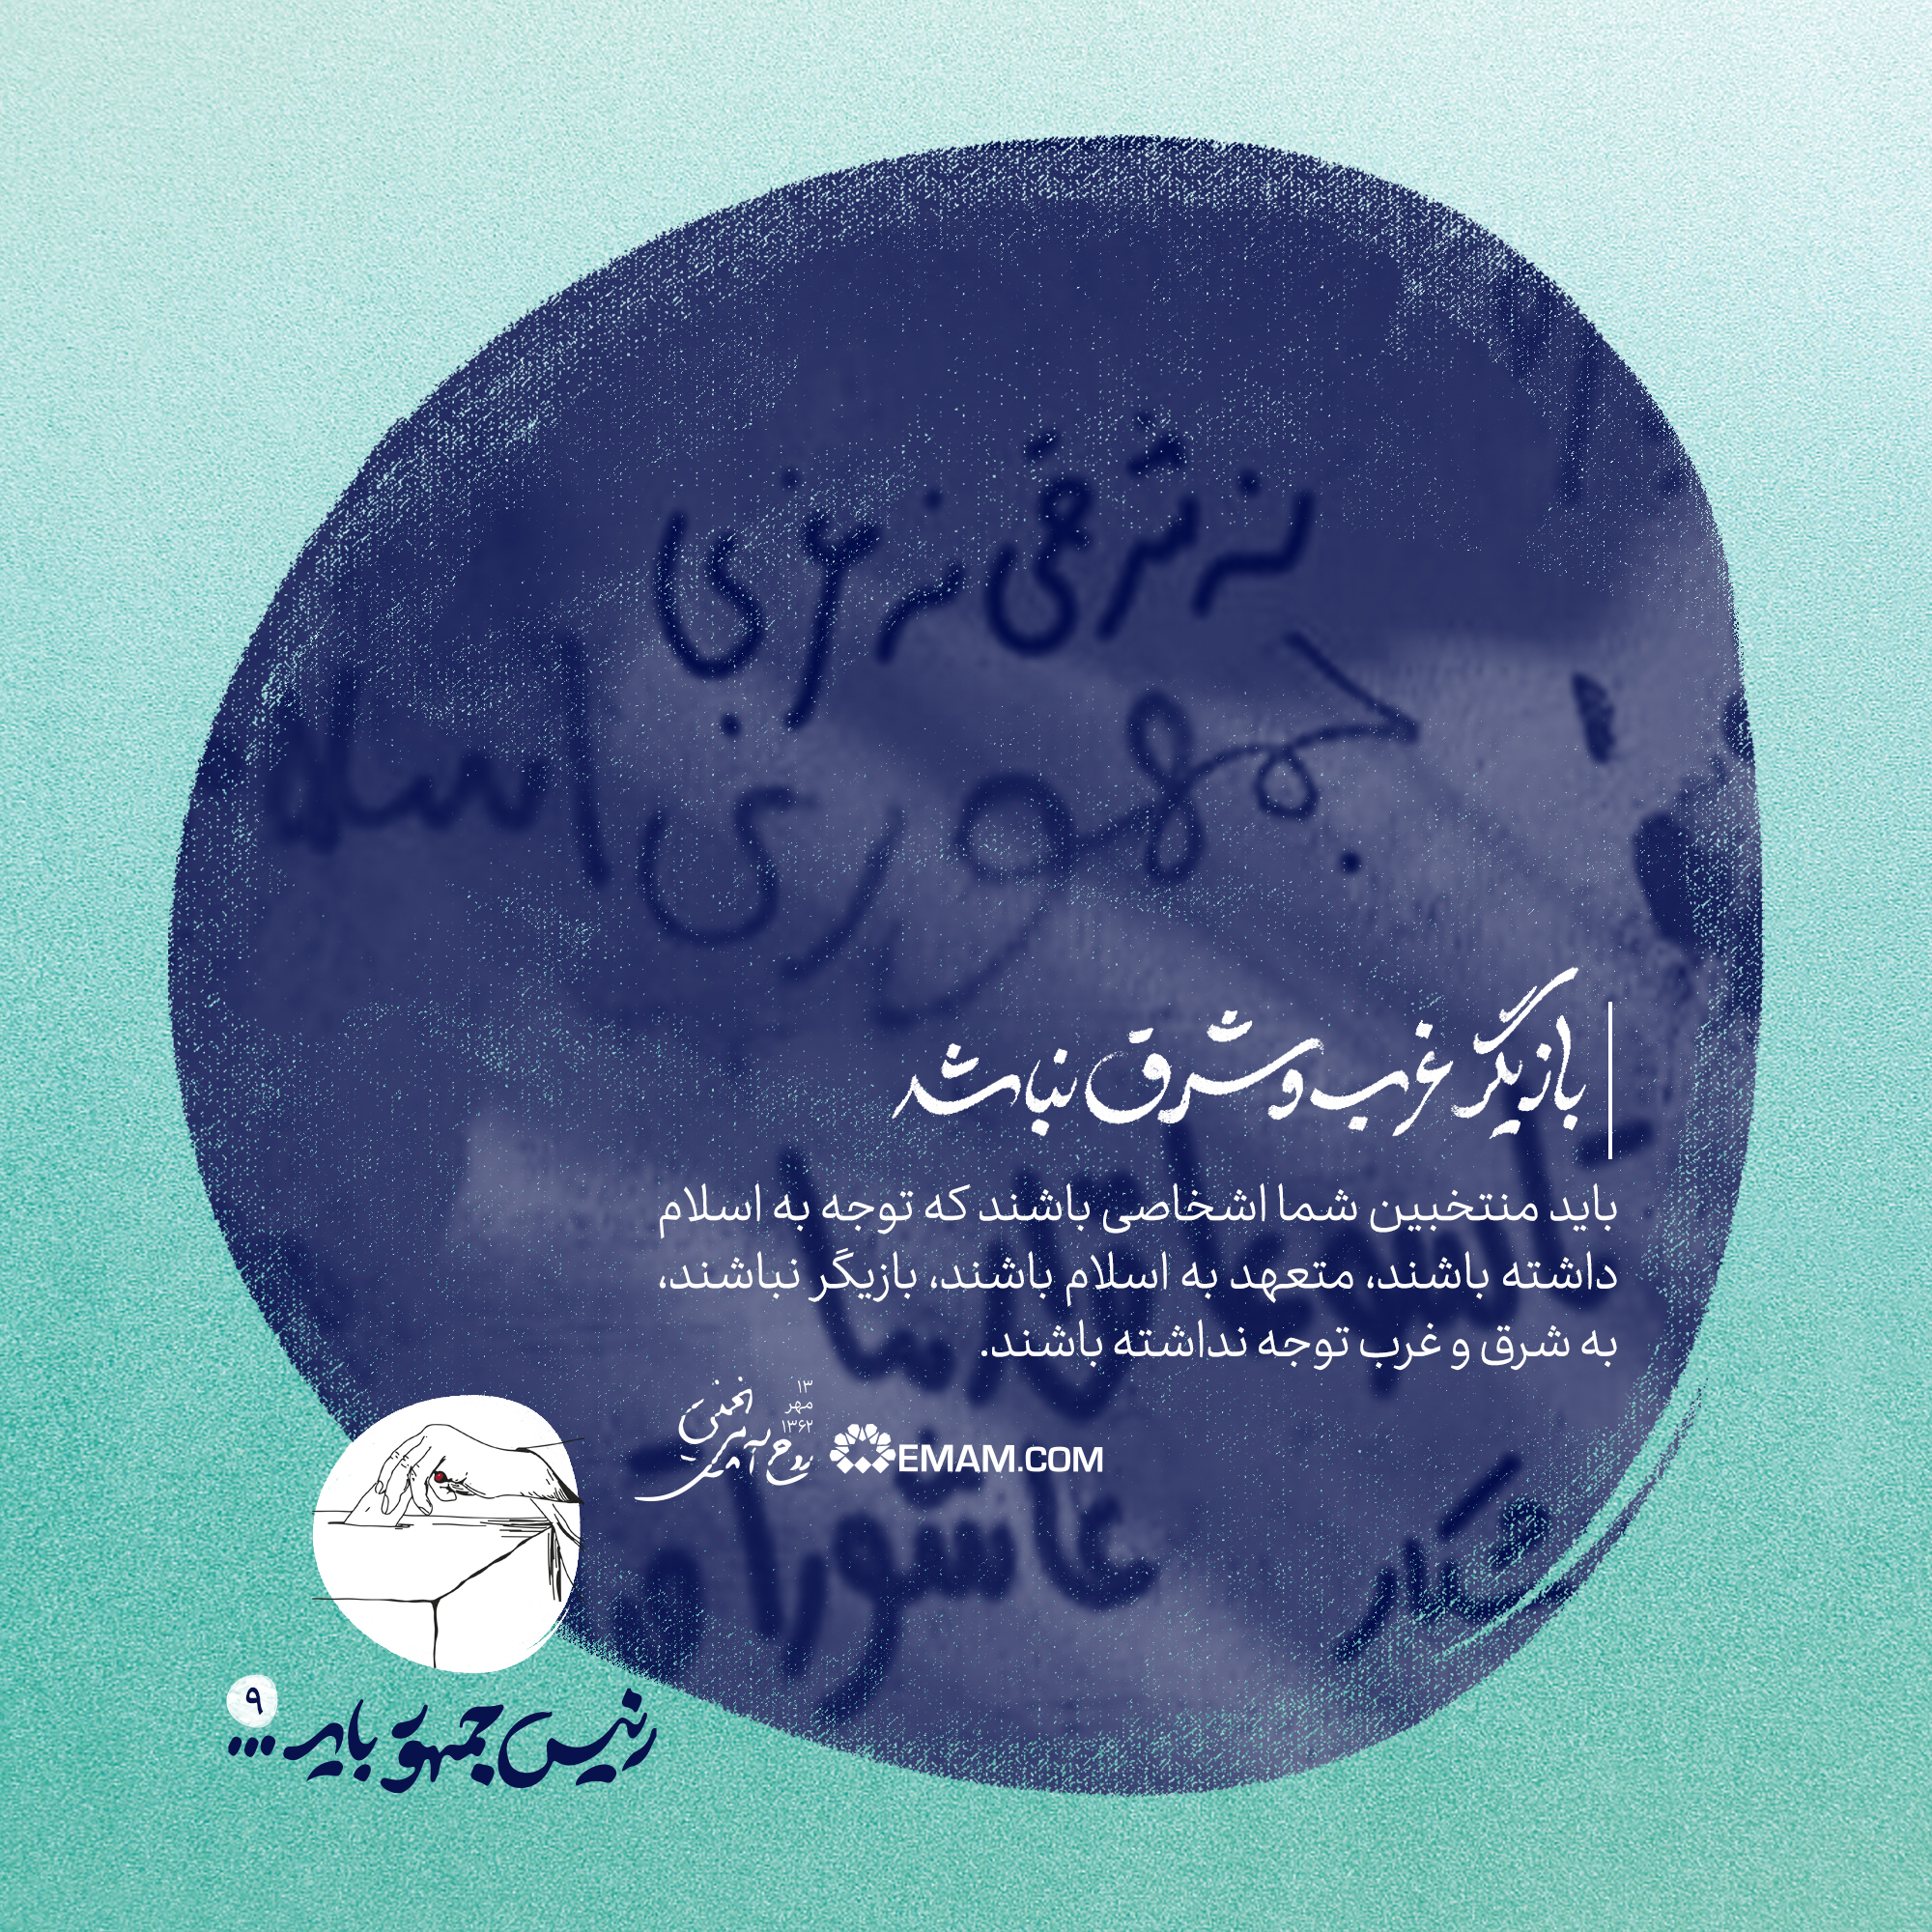 نه شرقی نه غربی
جمهوری اسلا
بازیگر غرب و شرق نباشد
باید منتخبین شما اشخاصی باشند که توجه به اسلام
داشته باشند، متعهد به اسلام باشند، بازیگر نباشند،
به شرق و غرب توجه نداشته باشند.
۱۳
مهر
۱۳۶۲
روح الله الموسوی الخمینی
EMAM.COM
عاشورا
۹
رئیس جمهور باید ...